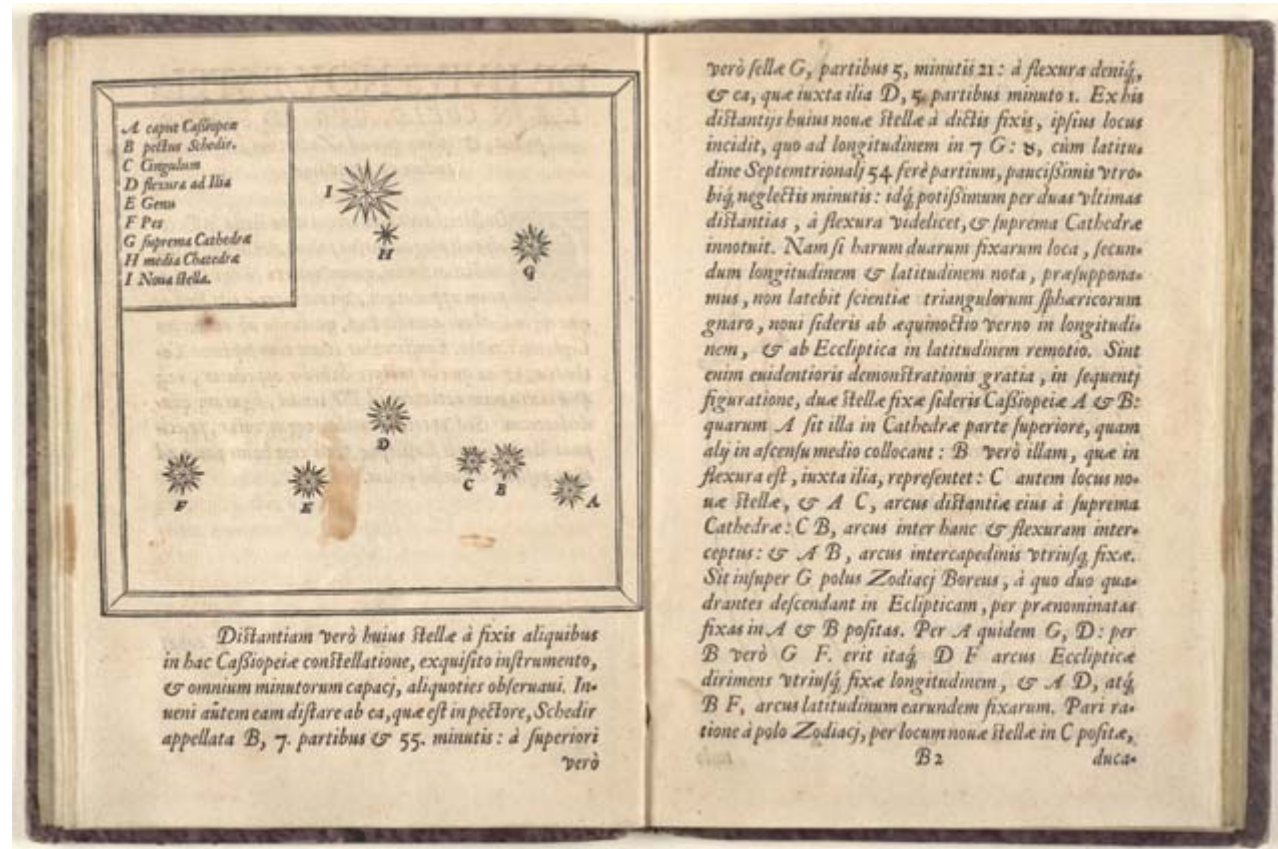 A caput Caßiopeæ
B pectus Schedir.
C Cingulum
D flexura ad Ilia
E Genu
F Pes
G suprema Cathedræ
H media Chatedræ
I Noua stella.
I
H
G
D
F
E
C
B
A
Distantiam verò huius stellæ à fixis aliquibus
in hac Caßiopeiæ constellatione, exquisito instrumento,
& omnium minutorum capacj, aliquoties obseruaui. In-
ueni aũtem eam distare ab ea, quæ est in pectore, Schedir
appellata B, 7. partibus & 55. minutis: à superiori
verò
verò sellæ G, partibus 5, minutis 21: à flexura deniq́,
& ea, quæ iuxta ilia D, 5 partibus minuto 1. Ex his
distantijs huius nouæ stellæ à dictis fixis, ipsius locus
incidit, quo ad longitudinem in 7 G: ♉, cùm latitu-
dine Septemtrionalj 54 ferè partium, paucißimis vtro-
biq́ neglectis minutis: idq́ potißimum per duas vltimas
distantias, à flexura videlicet, & suprema Cathedræ
innotuit. Nam si harum duarum fixarum loca, secun-
dum longitudinem & latitudinem nota, præsuppona-
mus, non latebit scientiæ triangulorum sphæricorum
gnaro, noui sideris ab æquinoctio verno in longitudi-
nem, & ab Eccliptica in latitudinem remotio. Sint
enim euidentioris demonstrationis gratia, in sequentj
figuratione, duæ stellæ fixæ sideris Caßiopeiæ A & B:
quarum A sit illa in Cathedræ parte superiore, quam
alij in ascensu medio collocant: B verò illam, quæ in
flexura est, iuxta ilia, repræsentet: C autem locus no-
uæ stellæ, & A C, arcus distantiæ eius à suprema
Cathedræ: C B, arcus inter hanc & flexuram inter-
ceptus: & A B, arcus intercapedinis vtriusq́ fixæ.
Sit insuper G polus Zodiacj Boreus, à quo duo qua-
drantes descendant in Eclipticam, per prænominatas
fixas in A & B positas. Per A quidem G, D: per
B verò G F. erit itaq́ D F arcus Ecclipticæ
dirimens vtriusq́ fixæ longitudinem, & A D, atq́
B F, arcus latitudinum earundem fixarum. Pari ra-
tione à polo Zodiacj, per locum nouæ stellæ in C positæ,
B 2
duca-